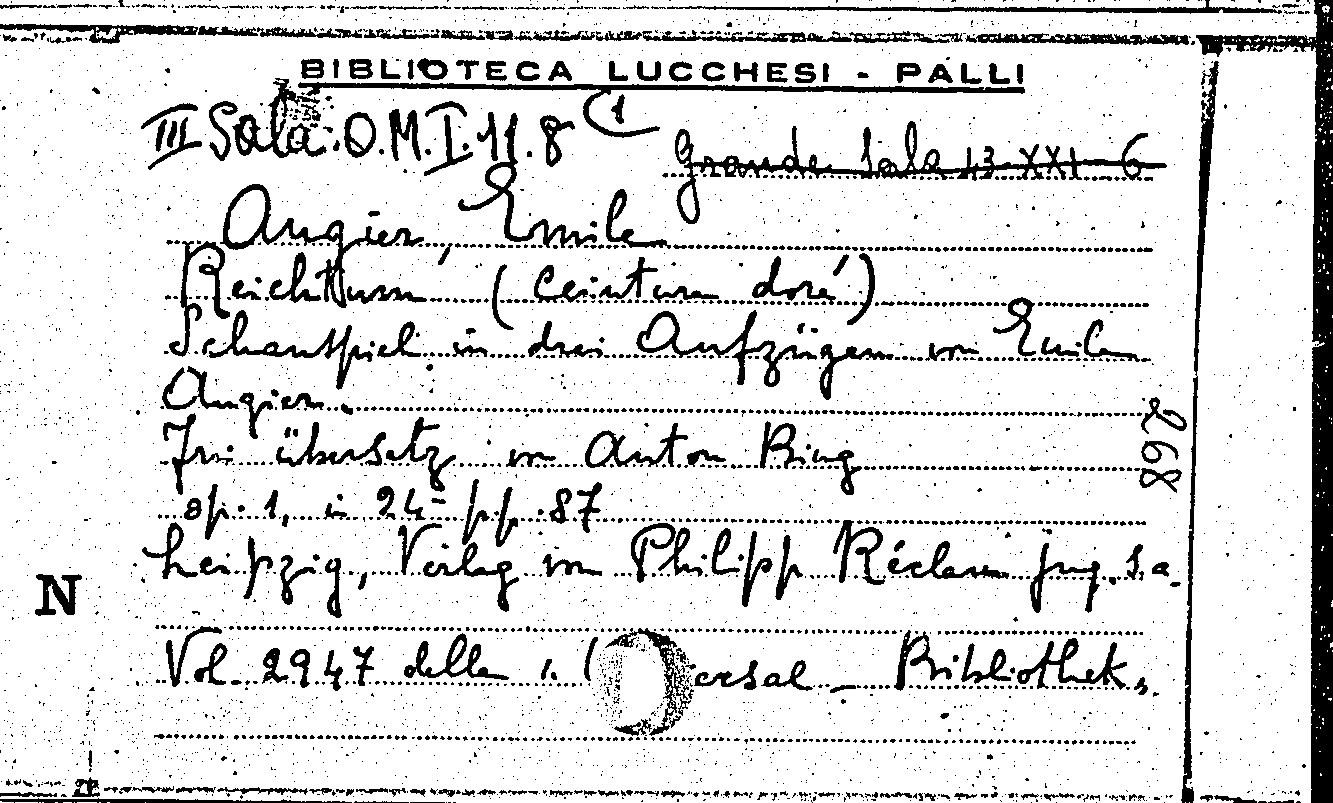 BIBLIOTECA LUCCHESI - PALLI
III Sala. O.M.I.11.8 (1
Grande Sala 13 XXI 6
Augier, Emile
Reichthum (Ceinture doré)
Schauspiel in drei Aufzügen von Emile
Augier.
Frei übersetz von Anton Bing
op. 1, in 24- pp. 87
Leipzig, Verlag von Philipp Réclam jun. s.a.
N
Vol. 2947 della ersal - Bibliothek
268